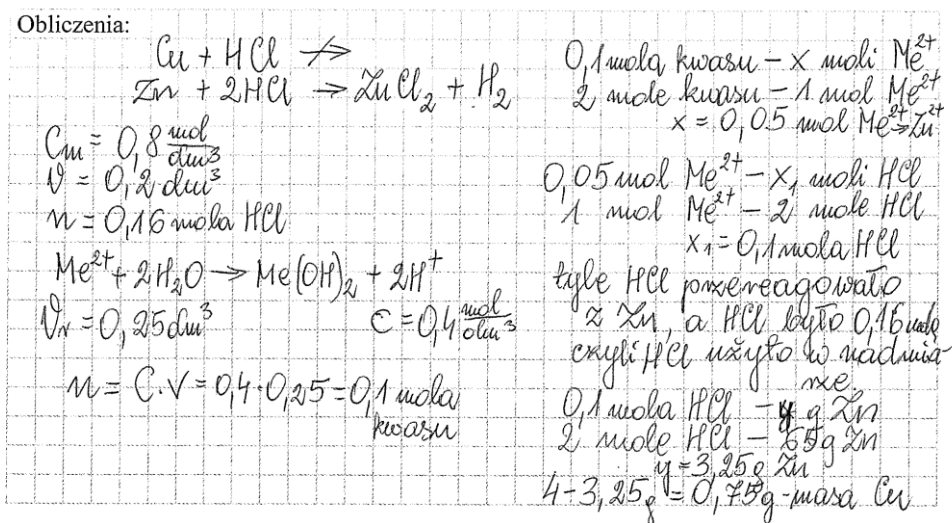 Obliczenia:
Cu + HCl ↛
Zn + 2HCl → ZnCl₂ + H₂
Cm = 0,8 mol/dm³
V = 0,2 dm³
n = 0,16 mola HCl
Me²⁺ + 2H₂O → Me(OH)₂ + 2H⁺
Vr = 0,25 dm³ C = 0,4 mol/dm³
n = C·V = 0,4·0,25 = 0,1 mola
kwasu
0,1 mola kwasu – x moli Me²⁺
2 mole kwasu – 1 mol Me²⁺
x = 0,05 mol Me²⁺ ⇒ Zn²⁺
0,05 mol Me²⁺ – x₁ moli HCl
1 mol Me²⁺ – 2 mole HCl
x₁ = 0,1 mola HCl
tyle HCl przereagowało
z Zn, a HCl było 0,16 mola
czyli HCl użyto w nadmia-
rze
0,1 mola HCl – y g Zn
2 mole HCl – 65g Zn
y = 3,25g Zn
4 – 3,25g = 0,75g – masa Cu